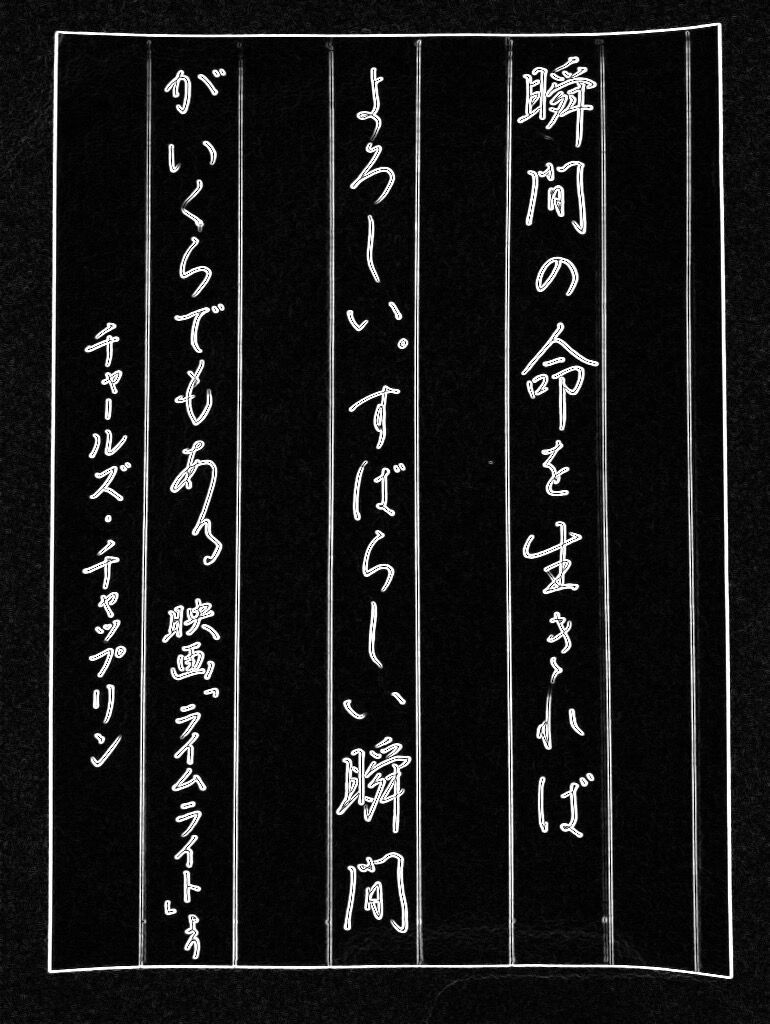 瞬間の命を生きれば
よろしい。すばらしい瞬間
がいくらでもある 映画「ライムライト」より
チャールズ・チャップリン